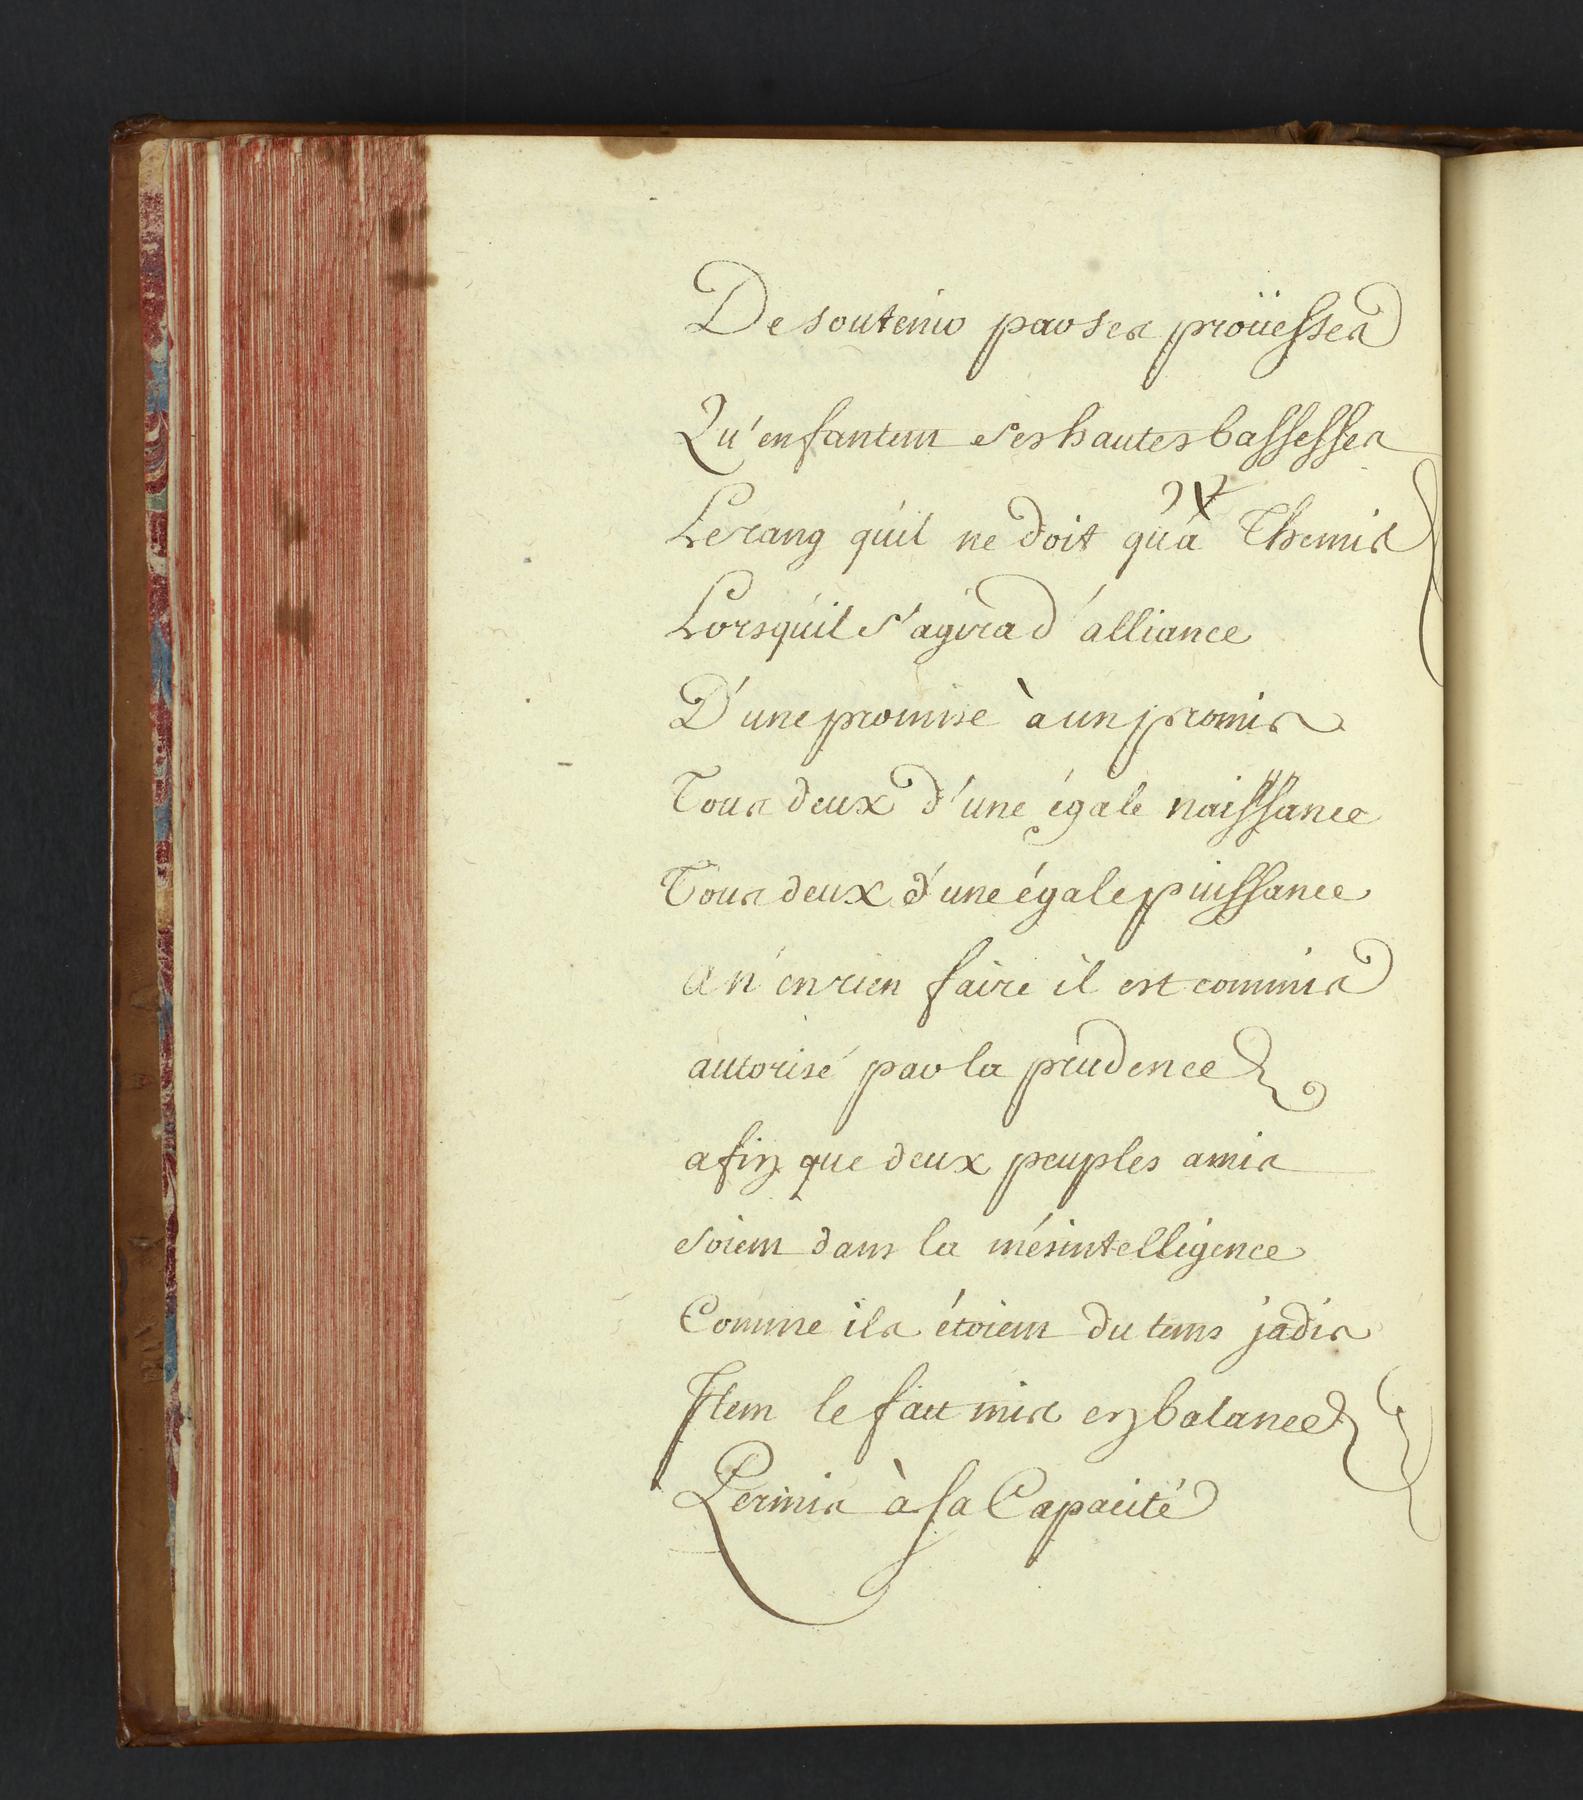 De soutenir par ses proüesses
Qu'enfantent ses hautes bassesses
Le rang qu'il ne doit qu'à Themis
Lorsqu'il s'agira d'alliance
D'une promise à un promis
Tous deux d'une égale naissance
Tous deux d'une égale puissance
a n'en rien faire il est commis
autorisé par la prudence
afin que deux peuples amis
soient dans la mésintelligence
Comme ils étoient du tems jadis
Item le fait mis en balance
Permis à sa Capacité